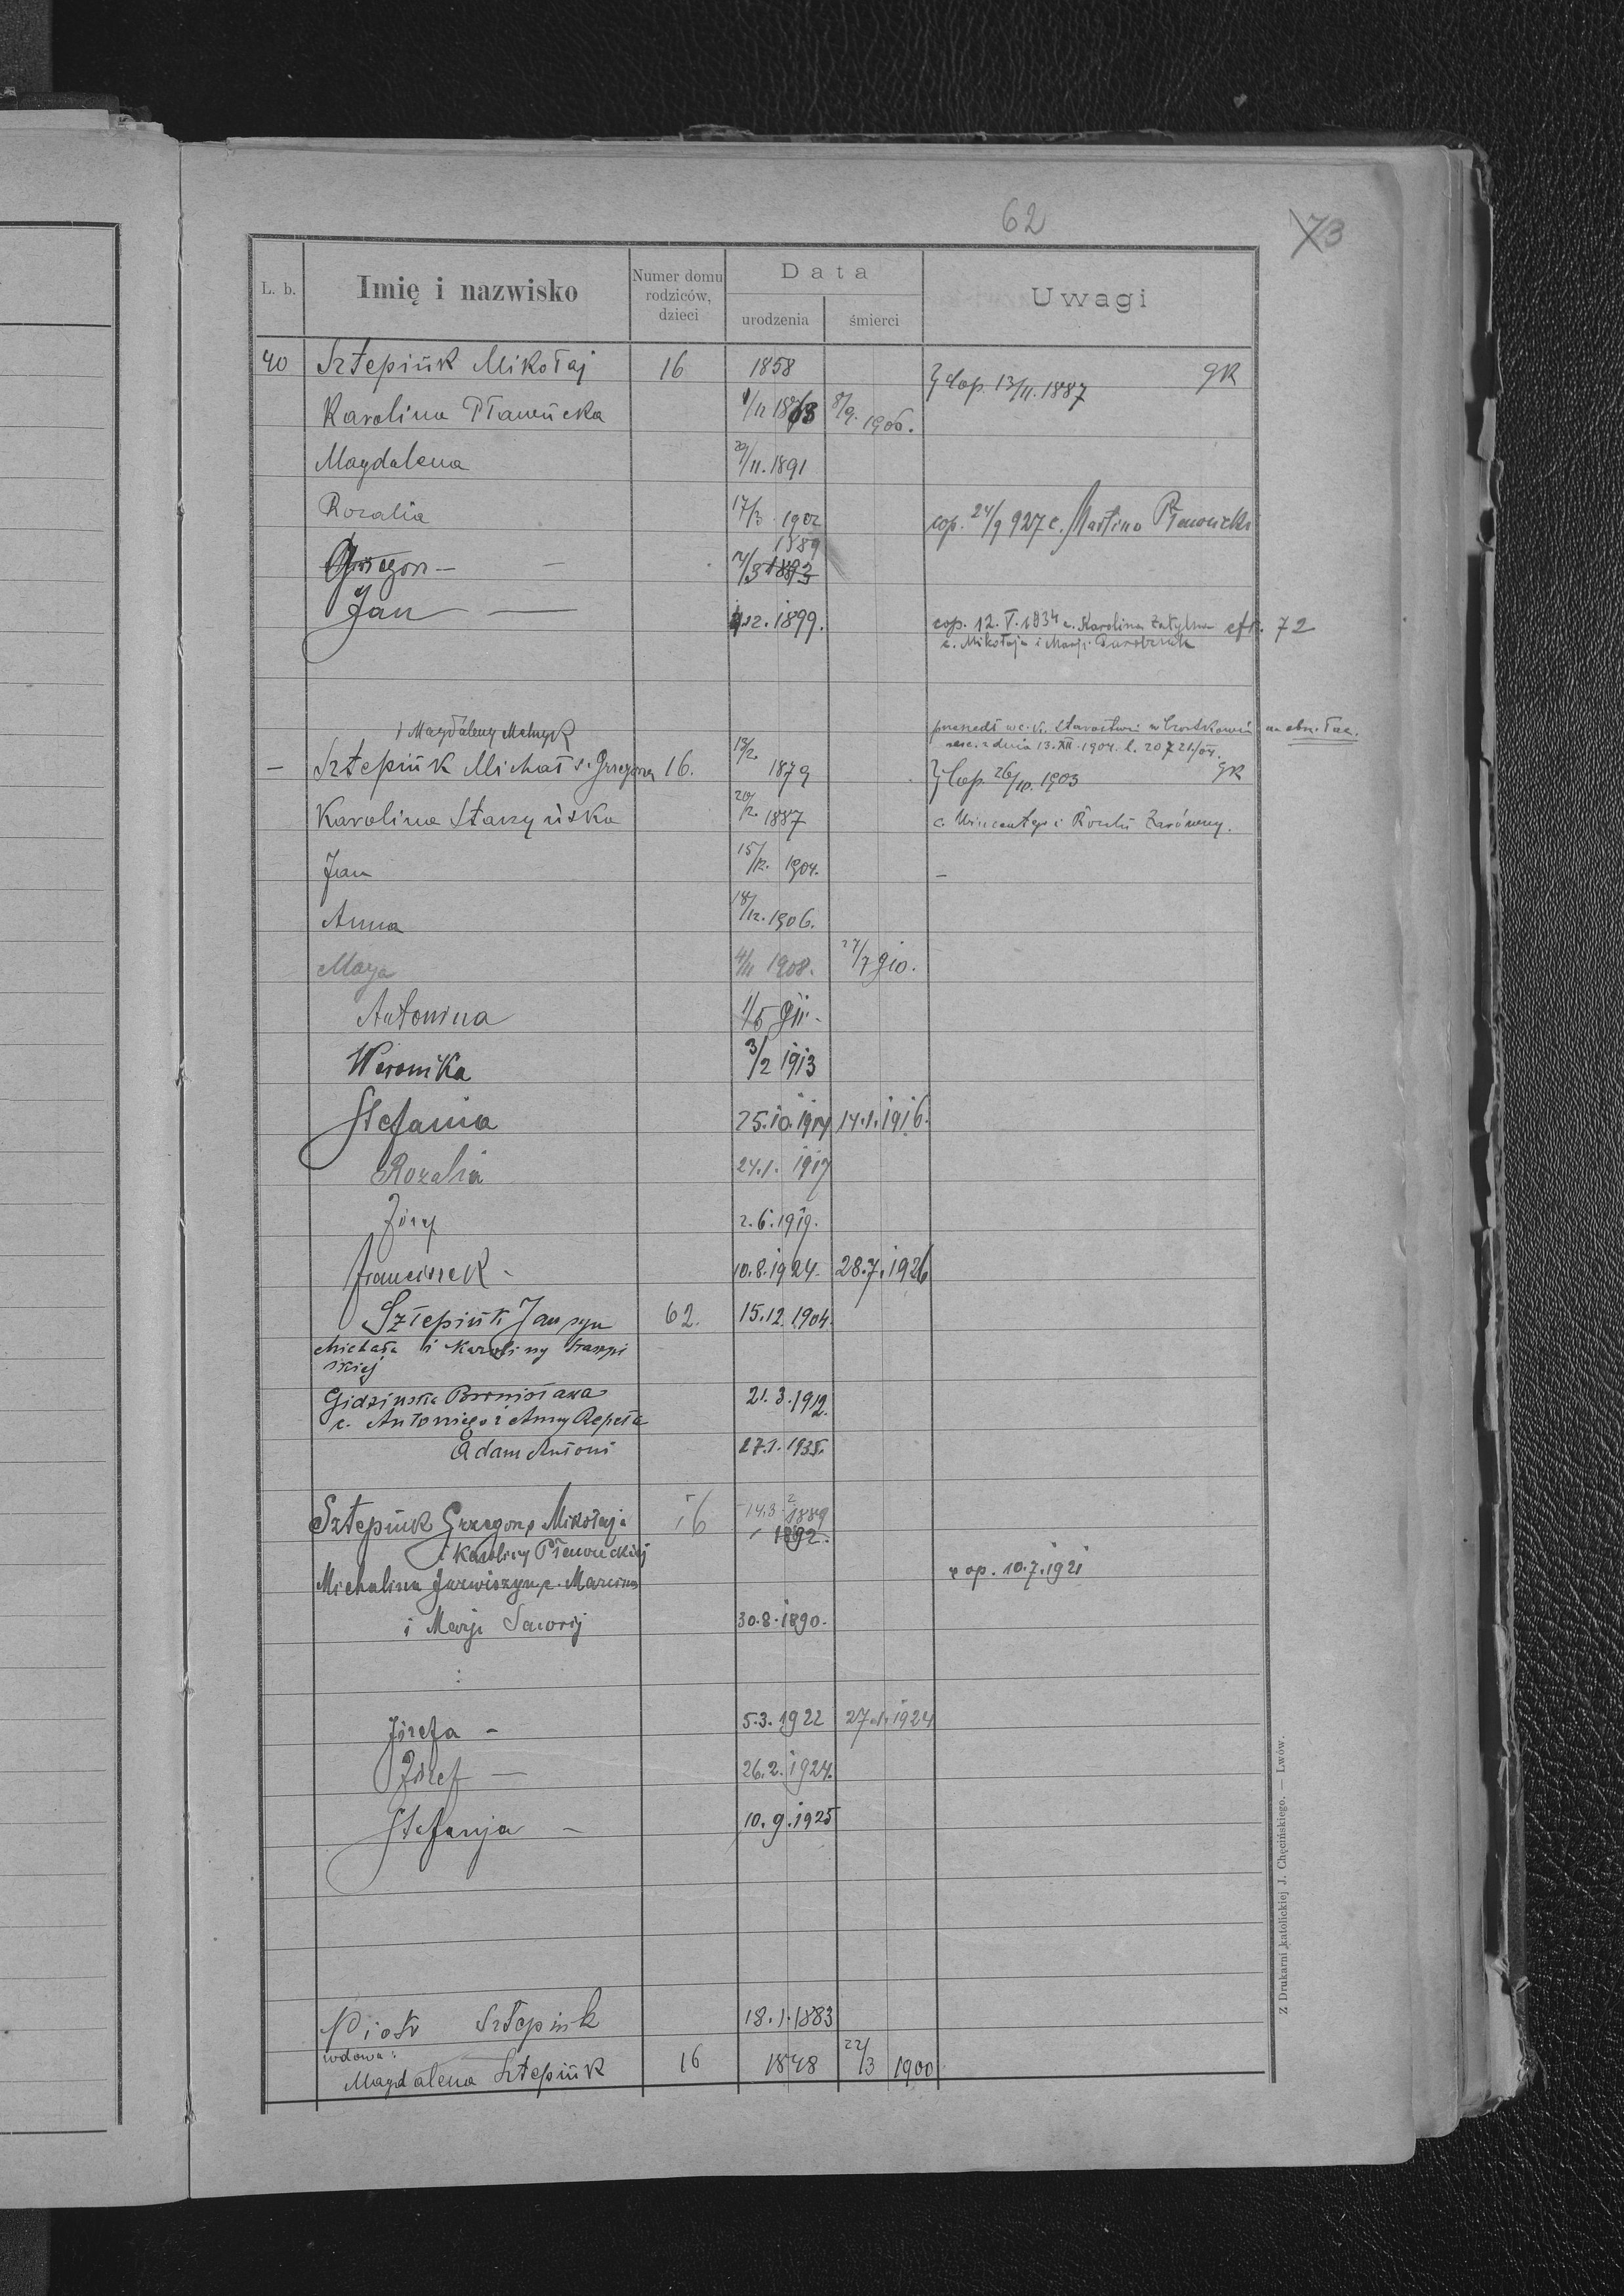 62
73
L. b.
Imię i nazwisko
Numer domu rodziców, dzieci
Data
urodzenia
śmierci
Uwagi
40 Sztepiuk Mikołaj 16 1858 Cop. 13/II. 1887 gk
Karolina 8/9. 1906.
Magdalena 20/11. 1891
Rozalia 17/3 1902 cop. 24/9 927 c. Martino
1889
Grzegorz — 1892
Jan — 12. 1899. cop. 12. V. 1934 c. Karolina cfr. 72
c. Mikołaja i Marji
i Magdaleny Melnyk
z dnia 13. XII. 1904. l. 20721/04.
— Sztepiuk Michał s. Grzegorza 16. 13/2. 1879 Cop. 1903 gk
Karolina Starzyńska 20/12. 1887 c. Wincentego i Rozalii
Jan 15/12. 1904. —
Anna 18/12. 1906.
Marja 4/11 1908. 27/7 910.
Antonina 1/5 911.
Weronika 3/2 1913
Stefania 25.10.1914 14.1.1916.
Rozalia 24.1. 1917
Józef 2.6.1919.
Franciszek - 10.8.1924. 28.7.1926
Sztepiuk Jan syn 62. 15.12.1904.
Michała i Karoliny
skiej
Gidzińska Bronisława 21.3.1912.
c. Antoniego i Anny Repeta
Adam Antoni 27.1.1935.
Sztepiuk Grzegorz Mikołaja 16 14.3. 1889
1892.
i Karoliny
Michalina c. Marcina cop. 10.7.1921
i Marji 30.8.1890.
Józefa - 5.3.1922 27.1.1924
Józef — 26.2.1924.
Stefanja — 10.9.1925
Piotr Sztepiuk 18.1.1883
wdowa:
Magdalena Sztepiuk 16 1848 22/3 1900
Z Drukarni katolickiej J. Chęcińskiego. — Lwów.